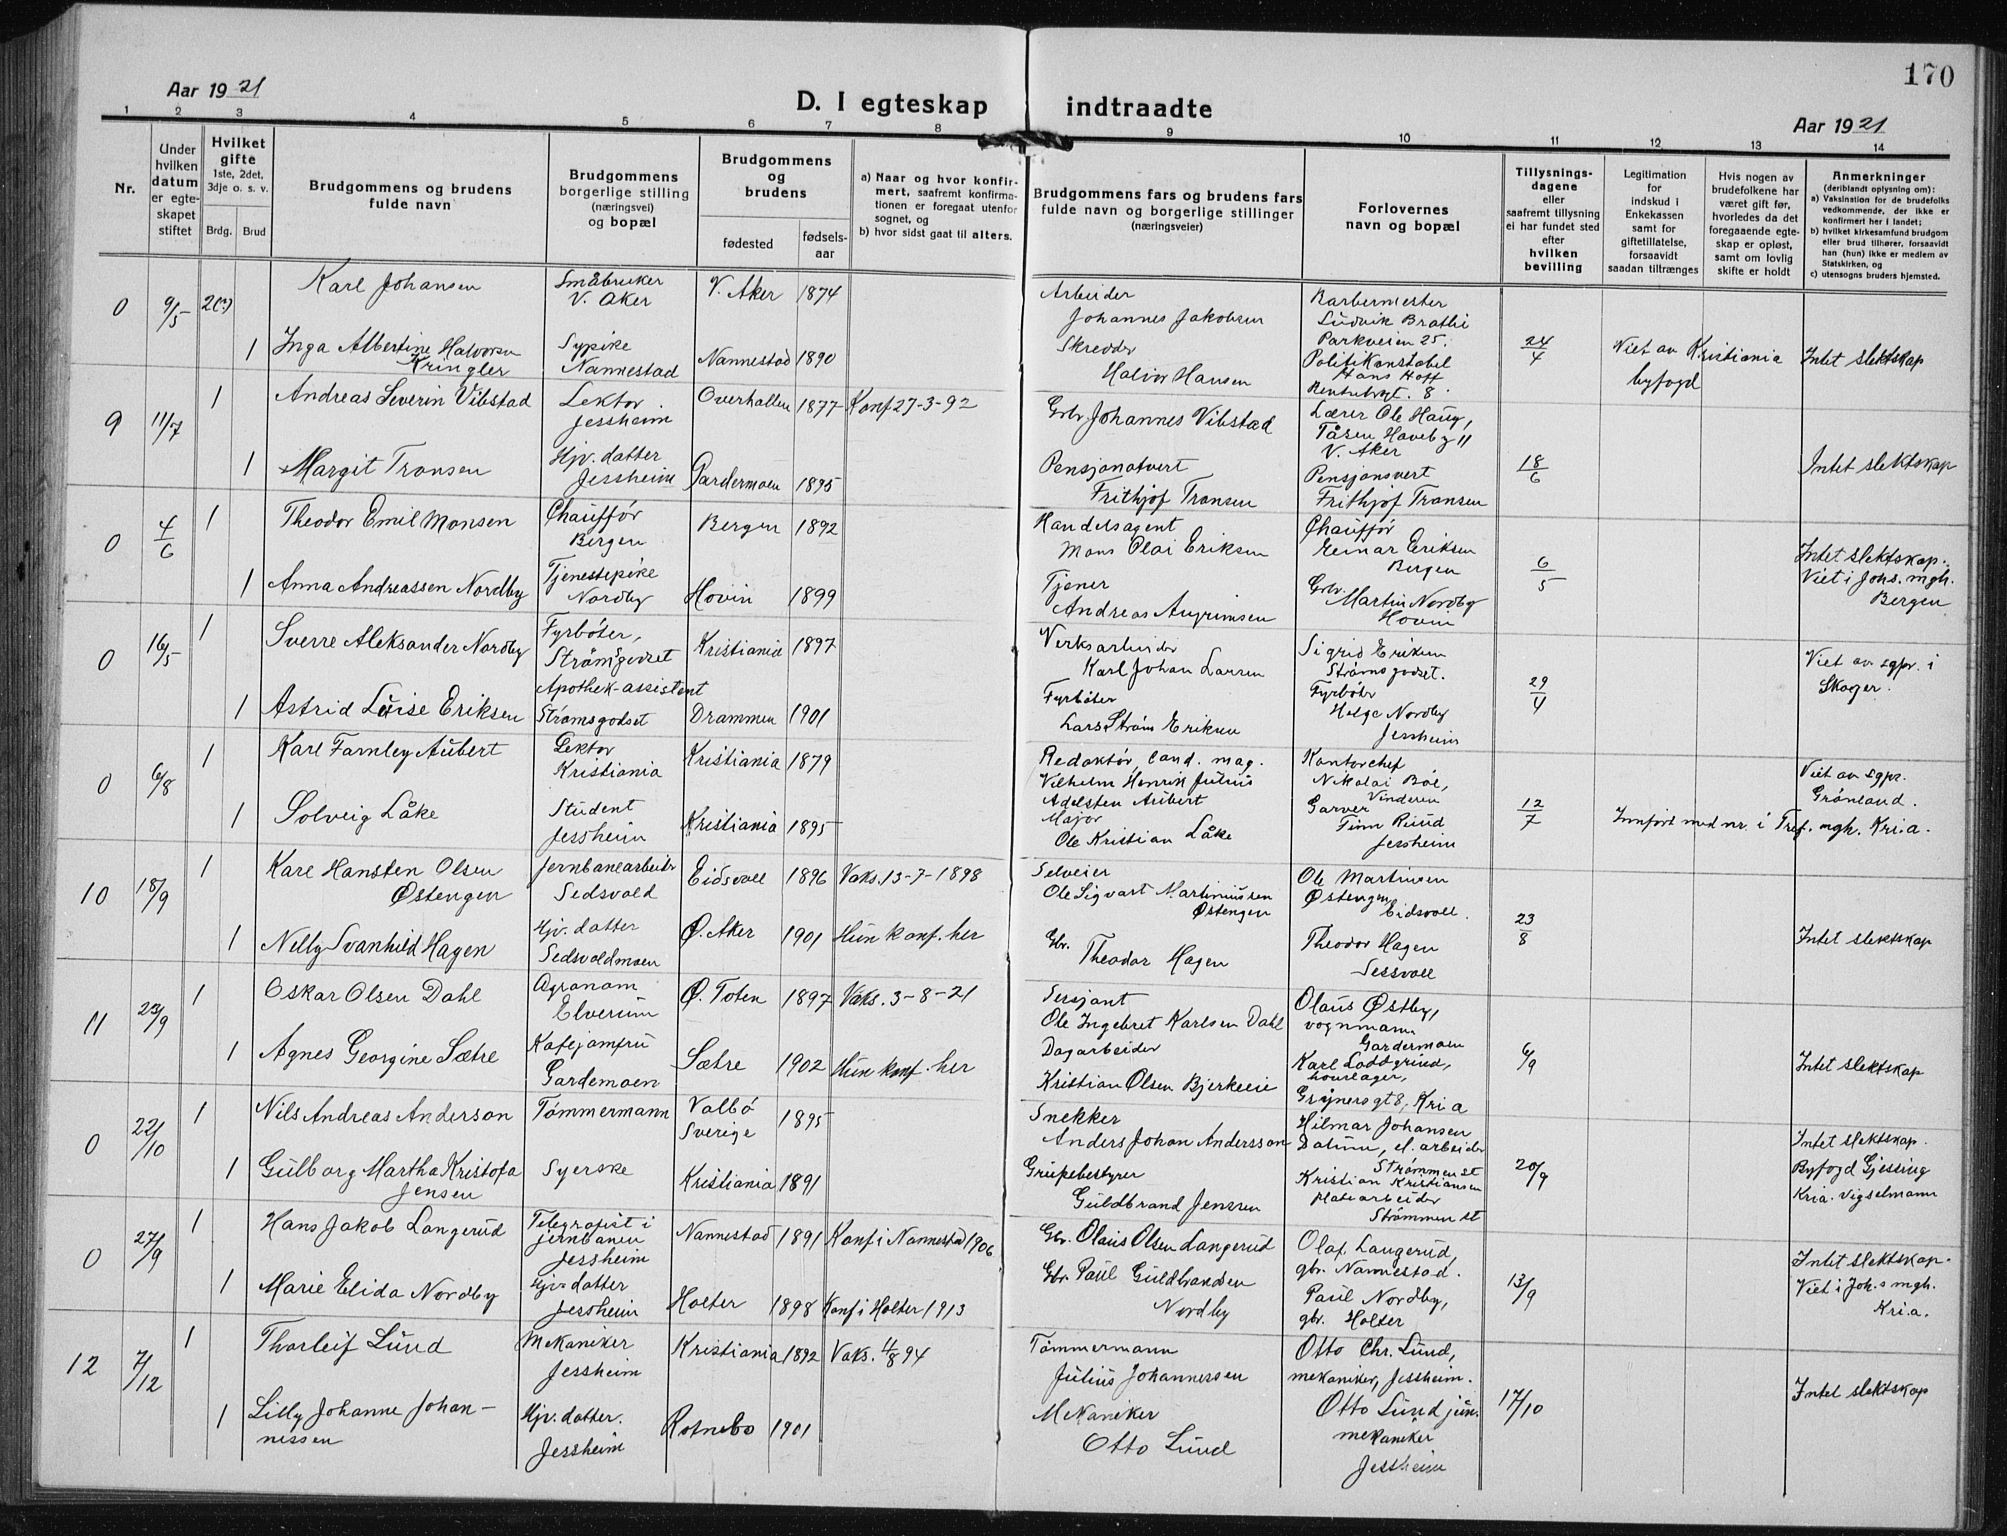 170
Aar 1921
D. I egteskap indtraadte
Aar 1921
1 2 3 4 5 6 7 8 9 10 11 12 13 14
Nr.
Under hvilken datum er egteskapet stiftet
Hvilket gifte 1ste, 2det, 3dje o. s. v.
Brdg. Brud
Brudgommens og brudens fulde navn
Brudgommens borgerlige stilling (næringsvei) og bopæl
Brudgommens og brudens
fødested
fødsels-aar
a) Naar og hvor konfirmert, saafremt konfirmationen er foregaat utenfor sognet, og
b) hvor sidst gaat til alters.
Brudgommens fars og brudens fars fulde navn og borgerlige stillinger (næringsveier)
Forlovernes navn og bopæl
Tillysningsdagene eller saafremt tillysning ei har fundet sted efter hvilken bevilling
Legitimation for indskud i Enkekassen samt for giftetillatelse, forsaavidt saadan tiltrænges
Hvis nogen av brudefolkene har været gift før, hvorledes da det foregaaende egteskap er opløst, samt om lovlig skifte er holdt
Anmerkninger (deriblandt oplysning om):
a) Vaksination for de brudefolks vedkommende, der ikke er konfirmert her i landet;
b) hvilket kirkesamfund brudgom eller brud tilhører, forsaavidt han (hun) ikke er medlem av Statskirken, og
c) utensogns bruders hjemsted.
0 9/5 2(?) Karl Johansen Småbruker V. Aker V. Aker 1874 Arbeider Johannes Jakobsen Barbermester Ludvik Brathi Parkveien 25.
1 Inga Albertine Halvorsen Kringler Sypike Nannestad Nannestad 1890 Skredder Halvor Hansen Politikonstabel Hans Hoff 8. 24/4 Viet av Kristiania byfogd Intet slektskap
9 11/7 1 Andreas Severin Vibstad Lektor Jessheim Overhallen 1877 Konf 27-3-92 Grbr Johannes Vibstad Lærer Ole Haug, Tåsen Haveby 11 V. Aker
1 Margit Transen Hjv. datter Jessheim Gardermoen 1895 Pensjonatvert Frithjof Transen Pensjonsvert Frithjof Transen 18/6 Intet slektskap
0 4/6 1 Theodor Emil Monsen Chauffør Bergen Bergen 1892 Handelsagent Mons Olai Eriksen Chauffør Einar Eriksen Bergen
1 Anna Andreassen Nordby Tjenestepike Nordby Hovin 1899 Tjener Andreas Angrimsen Grbr. Martin Nordby Hovin 6/5 Intet slektskap. Viet i Johs. mgh. Bergen
0 16/5 1 Sverre Aleksander Nordby Fyrbøter, Strømsgodset Kristiania 1897 Verksarbeider Karl Johan Larsen Sigrid Eriksen Strømsgodset.
1 Astrid Luise Eriksen Apothek-assistent Strømsgodset Drammen 1901 Fyrbøter Lars Strøm Eriksen Fyrbøter Helge Nordby Jessheim 29/4 Viet av sgpr. i Skoger.
0 6/8 1 Karl Farnley Aubert Lektor Kristiania Kristiania 1879 Redaktør, cand. mag. Vilhelm Henrik Julius Adelsten Aubert Kontorchef Nikolai Bøe, Vinderen
1 Solveig Låke Student Jessheim Kristiania 1895 Major Ole Kristian Låke Garver Finn Ruud Jessheim 12/7 Innført med nr. i Tref. mgh. Kr.ia. Viet av sgpr. Grønland.
10 18/9 1 Kare Hansten Olsen Østengen Jernbanearbeider Sedsvold Eidsvoll 1896 Vaks. 13-7-1898 Selveier Ole Sigvart Martiniussen Østengen Ole Martinsen Østengen Eidsvoll.
1 Nelly Svanhild Hagen Hjv. datter Sedsvoldmoen Ø. Aker 1901 Hun konf. her Gbr. Theodor Hagen Theodor Hagen Sessvoll 23/8 Intet slektskap
11 23/9 1 Oskar Olsen Dahl Agronom Elverum Ø. Toten 1897 Vaks. 3-8-21 Sersjant Ole Ingebret Karlsen Dahl Olaus Østby, vognmann Gardermoen
1 Agnes Georgine Sætre Kafejomfru Gardemoen Sætre 1902 Hun konf. her Dagarbeider Kristian Olsen Bjerkeeie Karl Loddgrund, Kr.ia 6/9 Intet slektskap
0 22/10 1 Nils Andreas Anderson Tømmermann Valbo Sverige 1895 Snekker Anders Johan Andersson Hilmar Johansen Datum, el. arbeider Strømmen st
1 Gulborg Martha Kristofa Jensen Syerske Kristiania 1891 Gruebestyrer Guldbrand Jensen Kristian Kristiansen platearbeider Strømmen st 20/9 Intet slektskap. Byfogd Gjessing Kria. vigselmann
0 27/9 1 Hans Jakob Langerud Telegrafist i jernbanen Jessheim Nannestad 1891 Konf i Nannestad 1906 Gbr. Olaus Olsen Langerud Olaf Langerud, gbr. Nannestad.
1 Marie Elida Nordby Hjv. datter Jessheim Holter 1898 Konf i Holter 1913 Gbr. Paul Guldbrandsen Nordby Paul Nordby, gbr. Holter 13/9 Intet slektskap. Viet i Johs mgh. Kr.ia.
12 7/12 1 Thorleif Lund Mekaniker Jessheim Kristiania 1892 Vaks. 11/8 94 Tømmermann Julius Johannessen Otto Chr. Lund, mekaniker, Jessheim.
1 Lilly Johanne Johannessen Hjv. datter. Jessheim Rotnebo 1901 Mekaniker Otto Lund Otto Lund jun. mekaniker Jessheim 17/10 Intet slektskap